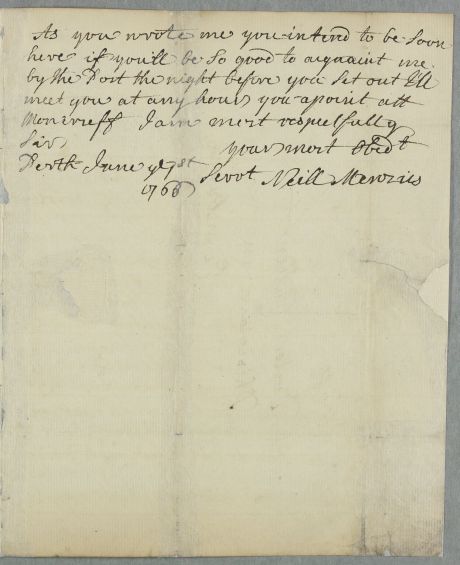 As you wrote me you intend to be soon
here if you'll be so good to acquaint me
by the Post the night before you set out I'll
meet you at any hour you apoint att
Moncrieff I am most respectfully
Sir
your most Obedt
Perth June 1766
Servt Neill Menzies